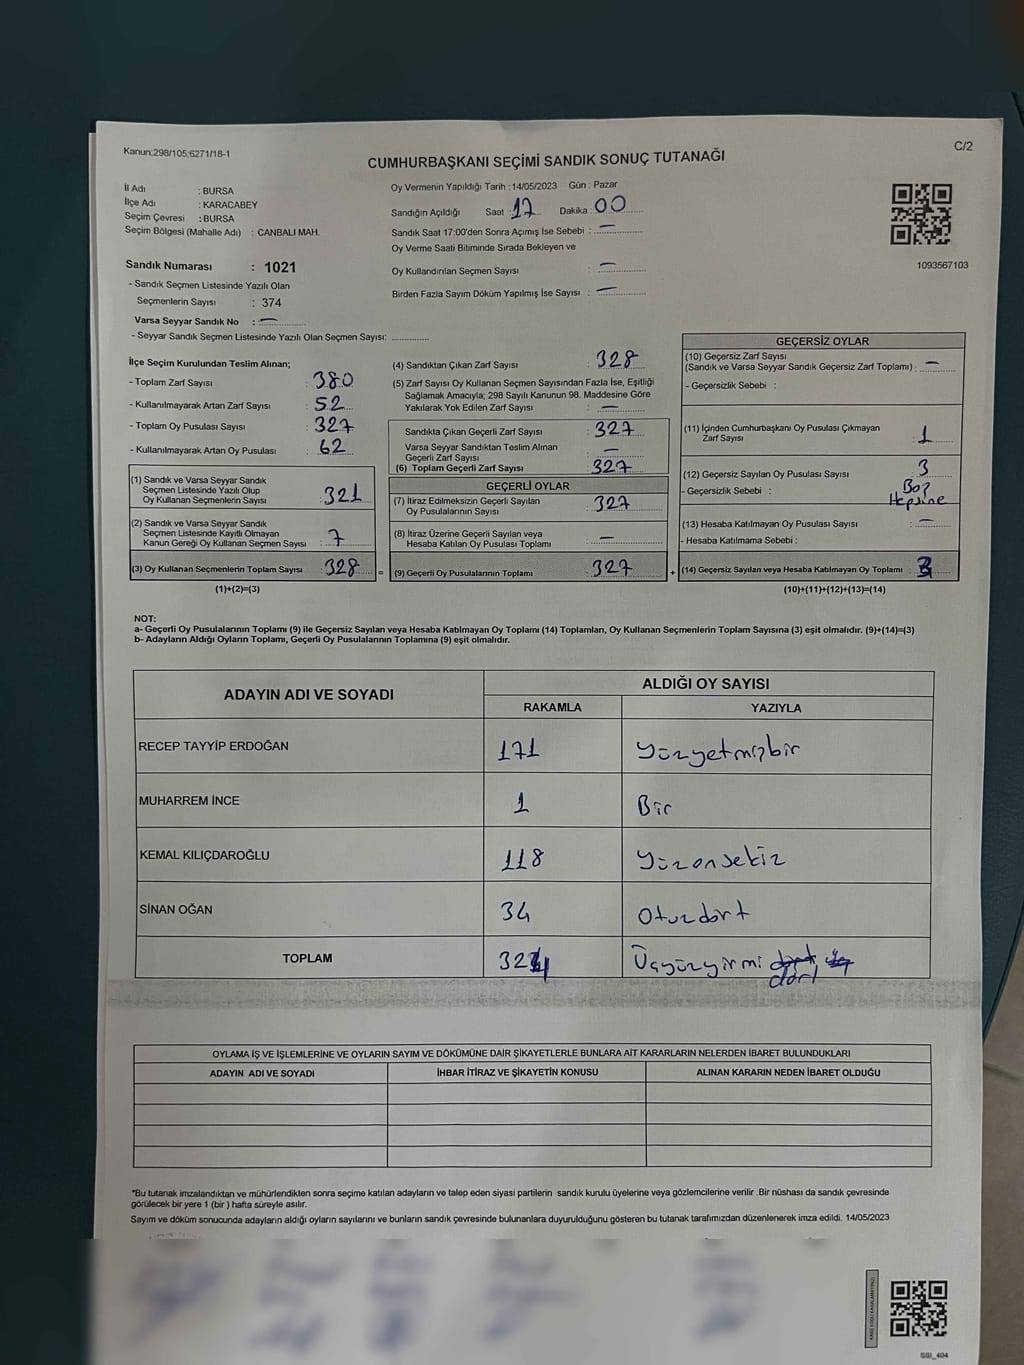 Kanun;298/105;6271/18-1
C/2
CUMHURBAŞKANI SEÇİMİ SANDIK SONUÇ TUTANAĞI
İl Adı : BURSA
İlçe Adı : KARACABEY
Seçim Çevresi : BURSA
Seçim Bölgesi (Mahalle Adı) : CANBALI MAH.
Oy Vermenin Yapıldığı Tarih :14/05/2023 Gün : Pazar
Sandığın Açıldığı Saat : 17 Dakika 00
Sandık Saat 17:00'den Sonra Açımış İse Sebebi : —
Oy Verme Saati Bitiminde Sırada Bekleyen ve
Oy Kullandırılan Seçmen Sayısı : —
Birden Fazla Sayım Döküm Yapılmış İse Sayısı : —
1093567103
Sandık Numarası : 1021
- Sandık Seçmen Listesinde Yazılı Olan
Seçmenlerin Sayısı : 374
Varsa Seyyar Sandık No : —
- Seyyar Sandık Seçmen Listesinde Yazılı Olan Seçmen Sayısı:
İlçe Seçim Kurulundan Teslim Alınan;
- Toplam Zarf Sayısı : 380
- Kullanılmayarak Artan Zarf Sayısı : 52
- Toplam Oy Pusulası Sayısı : 327
- Kullanılmayarak Artan Oy Pusulası : 62
(1) Sandık ve Varsa Seyyar Sandık
Seçmen Listesinde Yazılı Olup
Oy Kullanan Seçmenlerin Sayısı : 321
(2) Sandık ve Varsa Seyyar Sandık
Seçmen Listesinde Kayıtlı Olmayan
Kanun Gereği Oy Kullanan Seçmen Sayısı : 7
(3) Oy Kullanan Seçmenlerin Toplam Sayısı : 328 =
(1)+(2)=(3)
(4) Sandıktan Çıkan Zarf Sayısı : 328
(5) Zarf Sayısı Oy Kullanan Seçmen Sayısından Fazla İse, Eşitliği
Sağlamak Amacıyla; 298 Sayılı Kanunun 98. Maddesine Göre
Yakılarak Yok Edilen Zarf Sayısı : —
Sandıkta Çıkan Geçerli Zarf Sayısı : 327
Varsa Seyyar Sandıktan Teslim Alınan
Geçerli Zarf Sayısı : —
(6) Toplam Geçerli Zarf Sayısı : 327
GEÇERLİ OYLAR
(7) İtiraz Edilmeksizin Geçerli Sayılan
Oy Pusulalarının Sayısı : 327
(8) İtiraz Üzerine Geçerli Sayılan veya
Hesaba Katılan Oy Pusulası Toplamı : —
(9) Geçerli Oy Pusulalarının Toplamı : 327 +
GEÇERSİZ OYLAR
(10) Geçersiz Zarf Sayısı
(Sandık ve Varsa Seyyar Sandık Geçersiz Zarf Toplamı) : —
- Geçersizlik Sebebi :
(11) İçinden Cumhurbaşkanı Oy Pusulası Çıkmayan
Zarf Sayısı : 1
(12) Geçersiz Sayılan Oy Pusulası Sayısı : 3
- Geçersizlik Sebebi : Boş
Hepsine
(13) Hesaba Katılmayan Oy Pusulası Sayısı : —
- Hesaba Katılmama Sebebi :
(14) Geçersiz Sayılan veya Hesaba Katılmayan Oy Toplamı : 3
(10)+(11)+(12)+(13)=(14)
NOT:
a- Geçerli Oy Pusulalarının Toplamı (9) ile Geçersiz Sayılan veya Hesaba Katılmayan Oy Toplamı (14) Toplamları, Oy Kullanan Seçmenlerin Toplam Sayısına (3) eşit olmalıdır. (9)+(14)=(3)
b- Adayların Aldığı Oyların Toplamı, Geçerli Oy Pusulalarının Toplamına (9) eşit olmalıdır.
ADAYIN ADI VE SOYADI
ALDIĞI OY SAYISI
RAKAMLA YAZIYLA
RECEP TAYYİP ERDOĞAN 171 Yüzyetmişbir
MUHARREM İNCE 1 Bir
KEMAL KILIÇDAROĞLU 118 Yüzonsekiz
SİNAN OĞAN 34 Otuzdört
TOPLAM 324 Üçyüzyirmi dört
OYLAMA İŞ VE İŞLEMLERİNE VE OYLARIN SAYIM VE DÖKÜMÜNE DAİR ŞİKAYETLERLE BUNLARA AİT KARARLARIN NELERDEN İBARET BULUNDUKLARI
ADAYIN ADI VE SOYADI İHBAR İTİRAZ VE ŞİKAYETİN KONUSU ALINAN KARARIN NEDEN İBARET OLDUĞU
*Bu tutanak imzalandıktan ve mühürlendikten sonra seçime katılan adayların ve talep eden siyasi partilerin sandık kurulu üyelerine veya gözlemcilerine verilir .Bir nüshası da sandık çevresinde
görülecek bir yere 1 (bir ) hafta süreyle asılır.
Sayım ve döküm sonucunda adayların aldığı oyların sayılarını ve bunların sandık çevresinde bulunanlara duyurulduğunu gösteren bu tutanak tarafımızdan düzenlenerek imza edildi. 14/05/2023